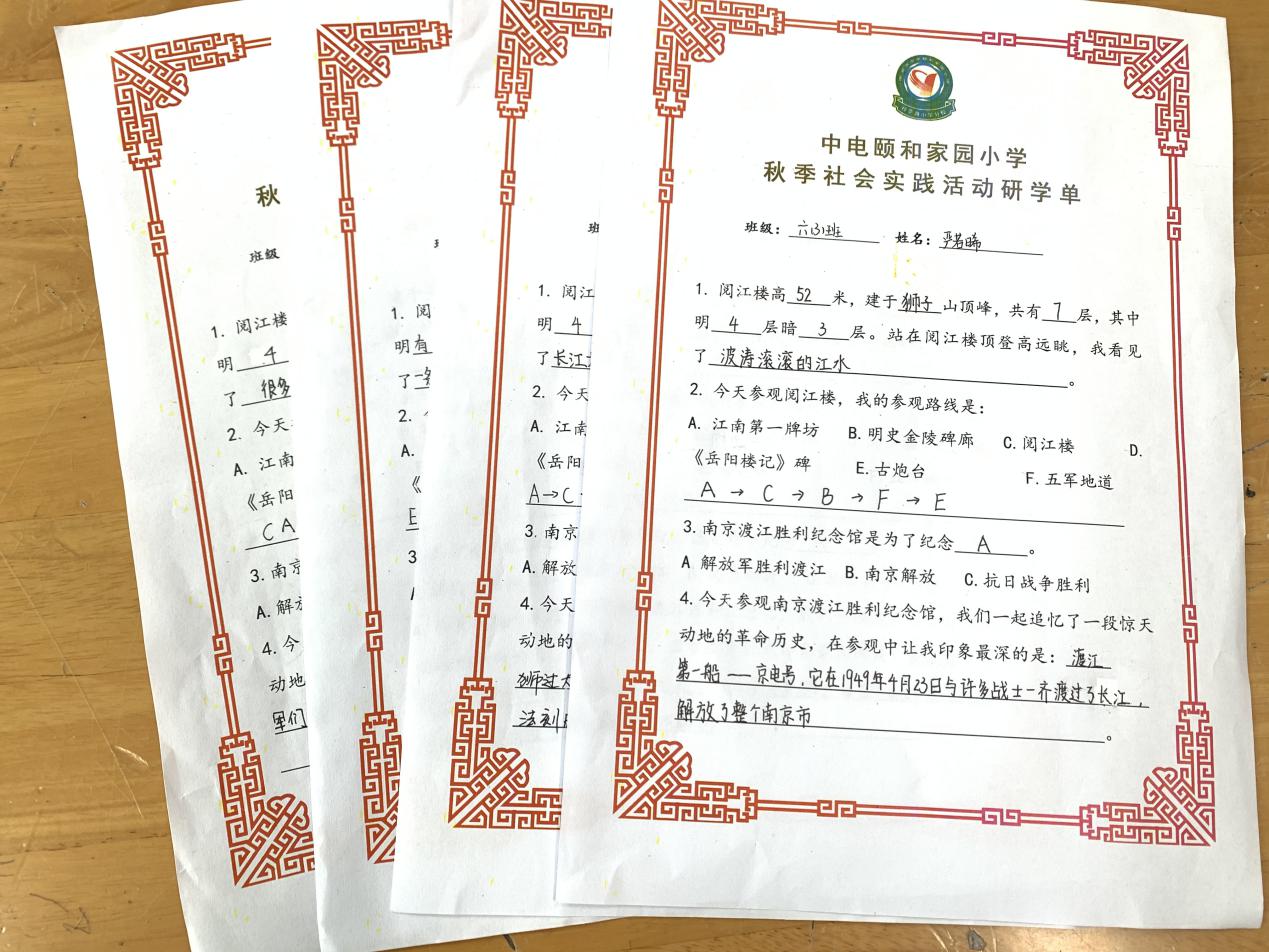 中电颐和家园小学
秋季社会实践活动研学单
班级：六(3)班 姓名：
1. 阅江楼高 52 米，建于狮子山顶峰，共有 7 层，其中
明 4 层暗 3 层。站在阅江楼顶登高远眺，我看见
了 波涛滚滚的江水 。
2. 今天参观阅江楼，我的参观路线是：
A. 江南第一牌坊 B. 明史金陵碑廊 C. 阅江楼 D.
《岳阳楼记》碑 E. 古炮台 F. 五军地道
A → C → B → F → E
3. 南京渡江胜利纪念馆是为了纪念 A 。
A 解放军胜利渡江 B. 南京解放 C. 抗日战争胜利
4. 今天参观南京渡江胜利纪念馆，我们一起追忆了一段惊天
动地的革命历史，在参观中让我印象最深的是：渡江
第一船 — 京电号，它在1949年4月23日与许多战士一齐渡过了长江，
解放了整个南京市 。
班
1. 阅江
明 4
了长江
2. 今天
A. 江南
《岳阳
A→C
3. 南京
A. 解放
4. 今天
动地的
1. 阅
明有
了
2.
A.
《
3
秋
班级
1. 阅江楼
明 4
了 很多
2. 今天
A. 江南
《岳阳
C A
3. 南京
A. 解放
4. 今
动地
军们